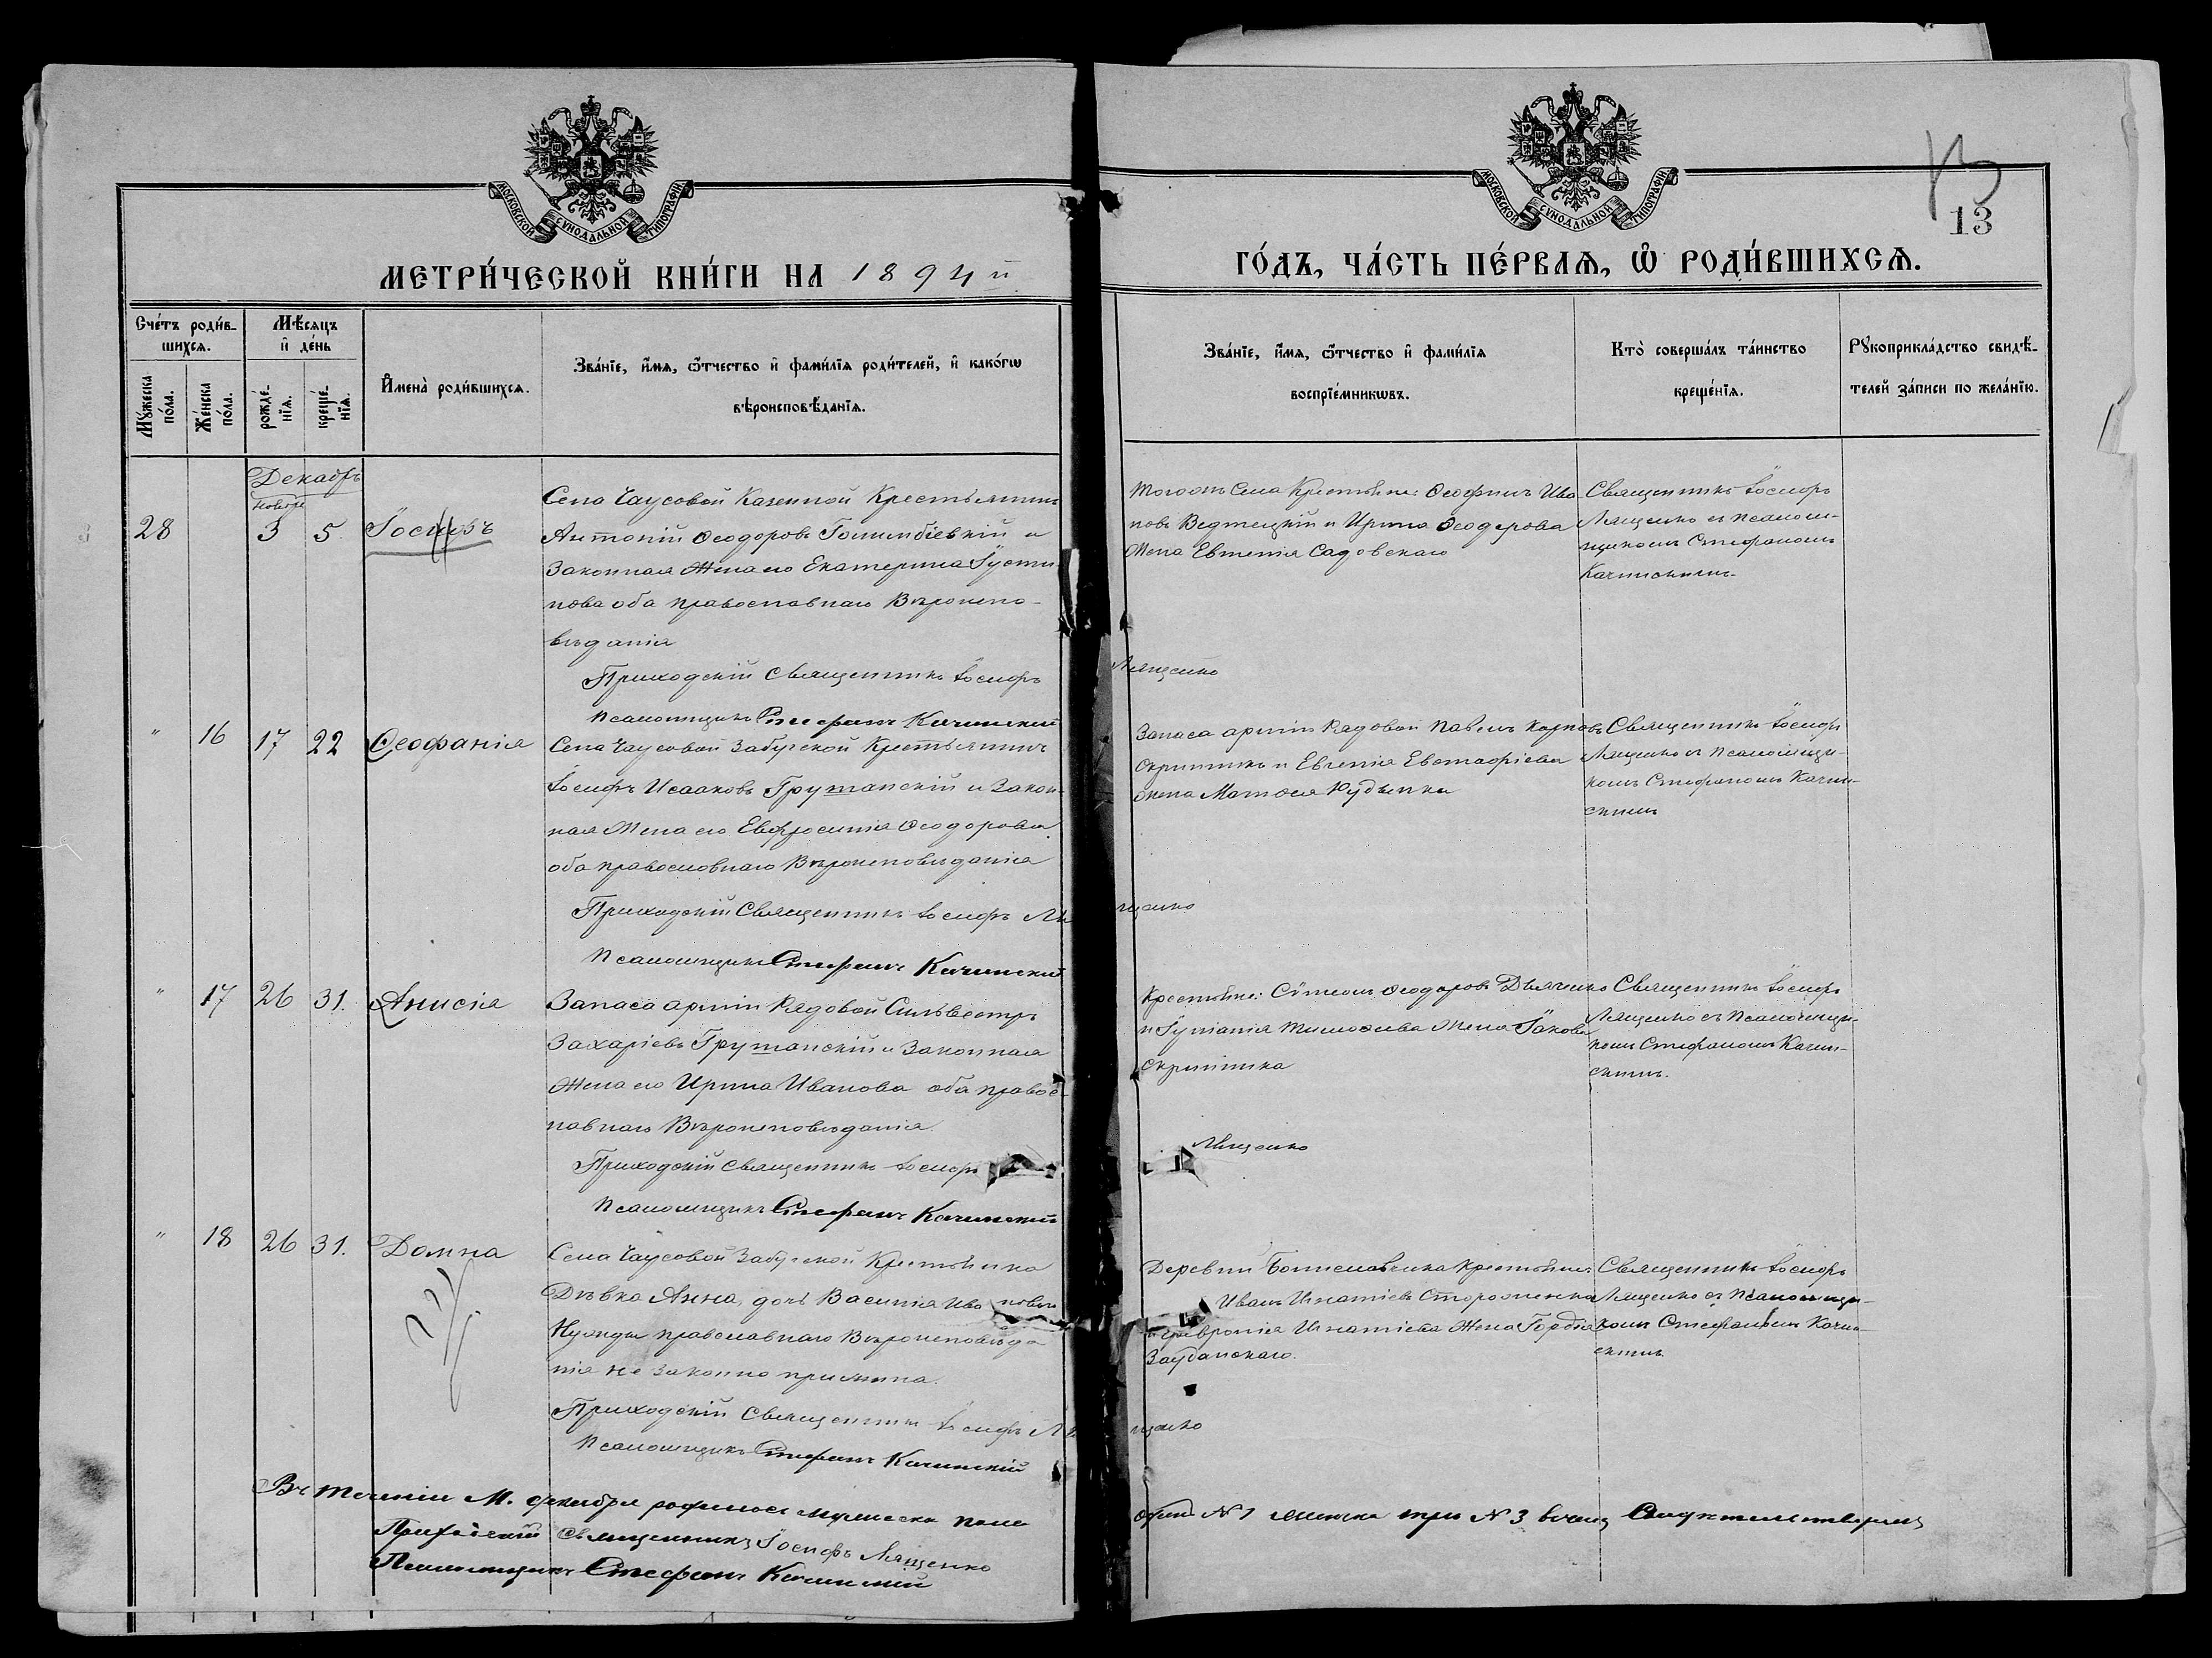 МОСКОВСКОЙ СУНОДАЛЬНОЙ ТИПОГРАФІИ
МЕТРИ́ЧЕСКОЙ КНИ́ГИ НА 1894 й
Сче́тъ роди́в-
шихсѧ.
Мꙋжеска
по́ла.
Же́нска
по́ла.
Мѣ́сѧцъ
и҆ де́нь
рожде́-
нїѧ.
креще́-
нїѧ.
И҆мена̀ роди́вшихсѧ.
Зва́нїе, и҆́мѧ, ѻ҆́тчество и҆ фами́лїѧ роди́телей, и҆ како́гѡ
вѣроисповѣ́данїѧ.
Декабрь
Ноября
28 3 5. Іосифъ
Села Чаусовой Казенной Крестьянинъ
Антоній Ѳеодоровъ и
Законная Жена его Екатерина Іусти
нова оба православнаго Вѣроиспо-
вѣданія
Приходскій Священникъ Іосифъ
Псаломщикъ Стефанъ Качинскій
" 16 17 22 Ѳеофанія
Села Чаусовой Забугской Крестьянинъ
Іосифъ Исааковъ Грушанскій и Закон-
ная Жена его Евфросинія Ѳеодорова
оба православнаго Вѣроисповѣданія
Приходскій Священникъ Іосифъ Ля
Псаломщикъ Стефанъ Качинскій
" 17 26 31. Анисія
Запаса арміи Рядовой Сильвестръ
Захаріевъ Грушанскій и Законная
Жена его Ирина Иванова оба правос-
лавнаго Вѣроисповѣданія.
Приходскій Священникъ Іосифъ
Псаломщикъ Стефанъ Качинскій
" 18 26 31. Домна
Села Чаусовой Забугской Крестьянка
Дѣвка Анна, дочь Василія Ива новы
православнаго Вѣроисповѣда
нія не законно прижита.
Приходскій Священникъ Іосифъ Ля
Псаломщикъ Стефанъ Качинскій
Въ теченіи М. декабря родилось мужеска пола
Приходскій Священникъ Іосифъ Лященко
Псаломщикъ Стефанъ Качинскій
13
13
МОСКОВСКОЙ СУНОДАЛЬНОЙ ТИПОГРАФІИ
ГО́ДЪ, ЧА́СТЬ ПЕ́РВАѦ, Ѡ҆ РОДИ́ВШИХСѦ.
Зва́нїе, и҆́мѧ, ѻ҆́тчество и҆ фами́лїѧ
воспрїе́мникѡвъ.
Кто̀ соверша́лъ та́инство
креще́нїѧ.
Рꙋкоприкла́дство свидѣ́-
телей за́писи по жела́нїю.
Тогожъ Села Крестьяне: Ѳеофилъ Ива-
новъ и Ирина Ѳеодорова
Жена Евгенія Садовскаго
Священникъ Іосифъ
Лященко съ псалом-
щикомъ Стефаномъ
Качинскимъ.
Лященко
Запаса арміи Рядовой Павелъ Карповъ
Скрипникъ и Евгенія Евстафіева
жена Матѳея
Священникъ Іосифъ
Лященко съ Псаломщи-
комъ Стефаномъ Качин-
скимъ
щенко
Крестьяне: Сѵмеонъ Ѳеодоровъ Дьяченко
и Іуліанія Тимоѳеева Жена Іакова
Скрипника
Священникъ Іосифъ
Лященко съ Псаломщи-
комъ Стефаномъ Качин-
скимъ.
Лященко
Деревни Крестьяне:
Иванъ Игнатіевъ Стороженко
Игнатіева Жена Гордія
Священникъ Іосифъ
Лященко съ Псаломщи-
комъ Стефаномъ Качин-
скимъ
щенко
одинъ №1 женска три №3